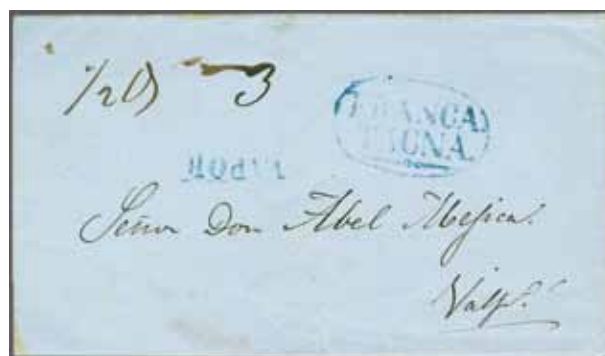 1/2 3
FRANCA
TACNA
VAPOR
Señor Don Abel
Valp.